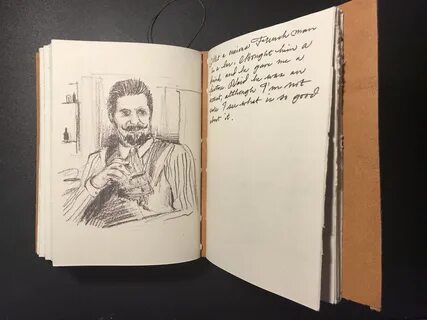 Met a curious French man
in a bar. I bought him a
drink and he gave me a
picture. Said he was an
artist, although I'm not
sure I see what is so good
about it.